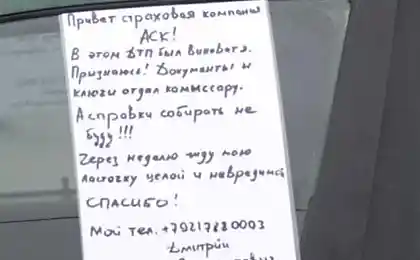 Привет страховая компания
АСК!
В этом ДТП был виноват я.
Признаюсь! Документы и
ключи отдал комиссару.
А справки собирать не
буду!!!
Через неделю жду мою
ласточку целой и невредимой
СПАСИБО!
Мой тел. +79217880003
Дмитрий